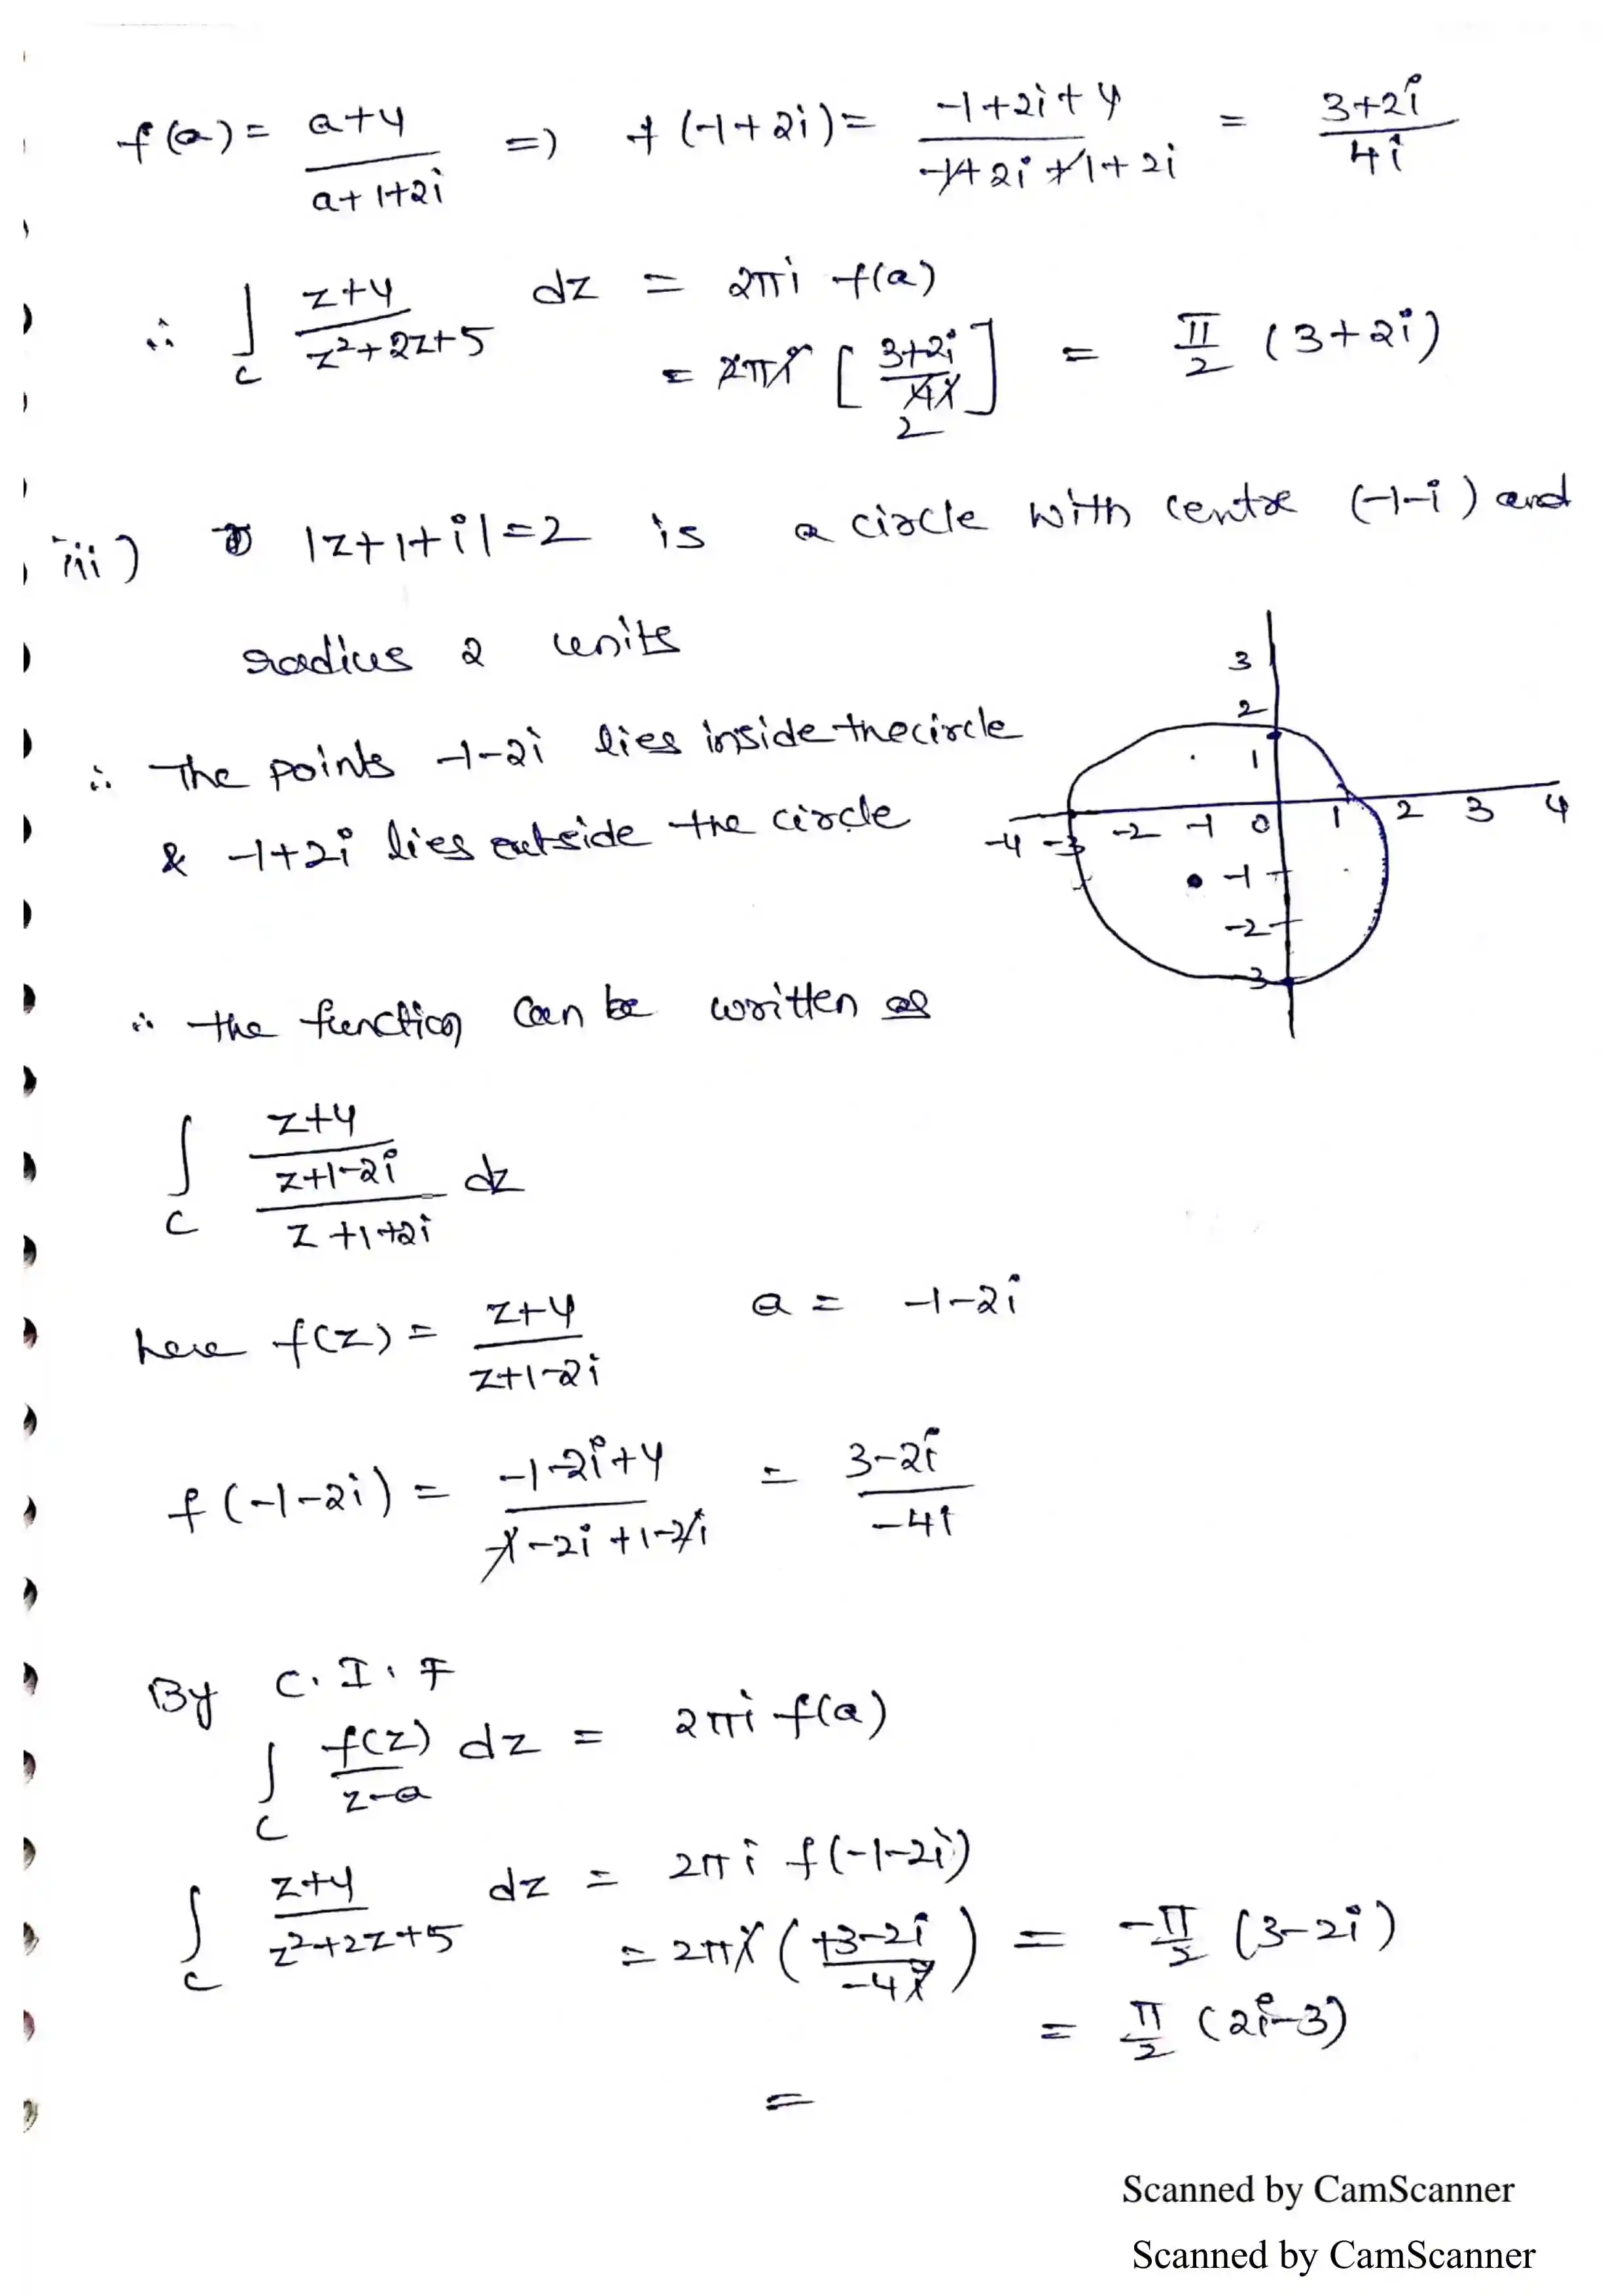 f(a) = (a+4)/(a+1+2i) ⇒ f(-1+2i) = (-1+2i+4)/(-1+2i+1+2i) = (3+2i)/(4i)
∴ ∫_C (z+4)/(z²+2z+5) dz = 2πi f(a)
= 2πi [(3+2i)/(4i)] = π/2 (3+2i)
iii) |z+1+i|=2 is a circle with centre (-1-i) and
radius 2 units
∴ The points -1-2i lies inside the circle
& -1+2i lies outside the circle
3
2
1
-4 -3 -2 -1 0 1 2 3 4
-1
-2
-3
∴ the function can be written as
∫_C ((z+4)/(z+1-2i))/(z+1+2i) dz
here f(z) = (z+4)/(z+1-2i) a = -1-2i
f(-1-2i) = (-1-2i+4)/(-1-2i+1-2i) = (3-2i)/(-4i)
By C.I.F
∫_C f(z)/(z-a) dz = 2πi f(a)
∫_C (z+4)/(z²+2z+5) dz = 2πi f(-1-2i)
= 2πi ((+3-2i)/(-4i)) = -π/2 (3-2i)
= π/2 (2i-3)
=
Scanned by CamScanner
Scanned by CamScanner